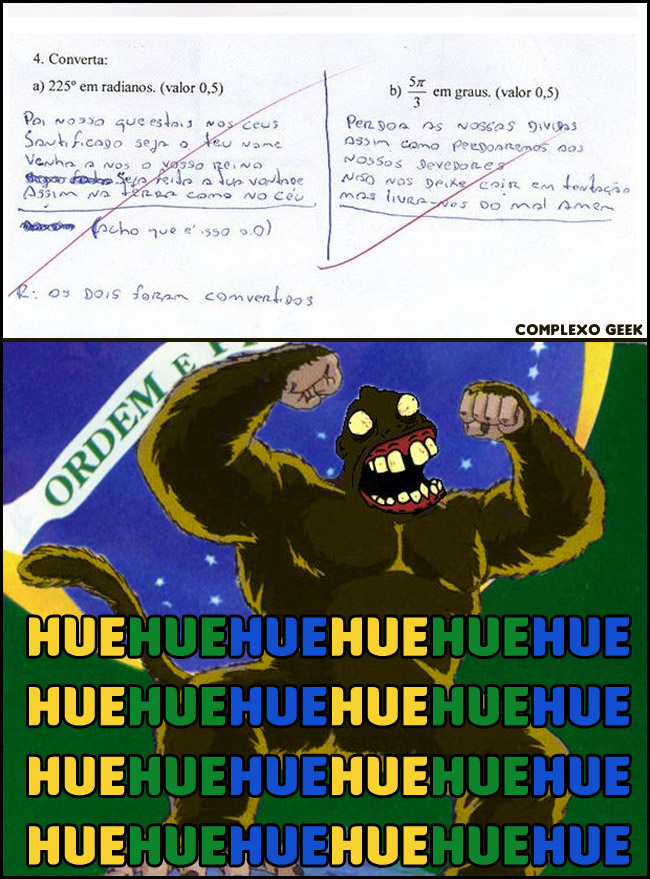 4. Converta:
a) 225º em radianos. (valor 0,5)
Pai nosso que estais nos ceus
Santificado seja o teu nome
Venha a nos o vosso reino
Seja feita a tua vontade
Assim na terra como no céu
(Acho que é isso o.O)
R: os dois foram comvertidos
b) 5π/3 em graus. (valor 0,5)
Perdoa as nossas dividas
Assim como perdoaremos aos
nossos devedores
Não nos deixe cair em tentação
mas livra-nos do mal amen
COMPLEXO GEEK
ORDEM E P
HUEHUEHUEHUEHUEHUE
HUEHUEHUEHUEHUEHUE
HUEHUEHUEHUEHUEHUE
HUEHUEHUEHUEHUEHUE